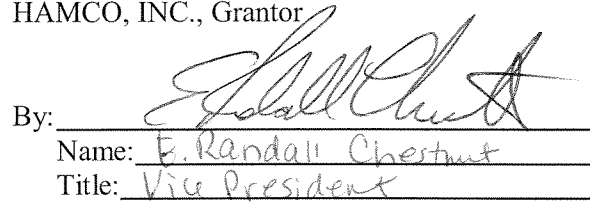 HAMCO, INC., Grantor
By: E Randall Chestnut
Name: E. Randall Chestnut
Title: Vice President